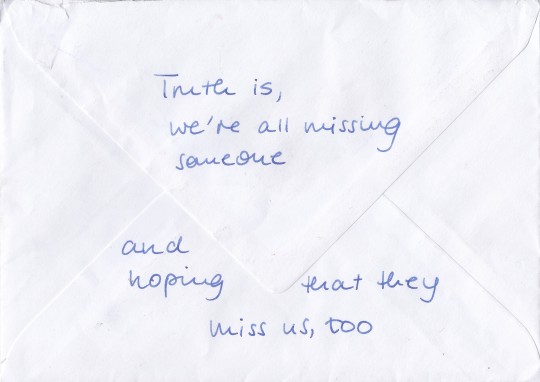 Truth is,
we're all missing
someone
and
hoping that they
miss us, too